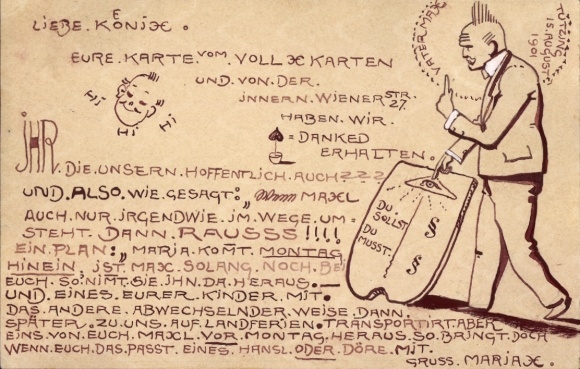 LIEBE. KÖNIX.
EURE. KARTE. VOM. VOLLX KARTEN
UND. VON. DER.
INNERN. WIENER STR. 27.
HABEN. WIR.
= DANKED
ERHALTEN.
Hi Hi Hi Hi
IHR. DIE. UNSERN. HOFFENTLICH. AUCH???
UND. ALSO. WIE. GESAGT: „ MAXL
AUCH. NUR. IRGENDWIE. IM. WEGE. UM-
STEHT. DANN. RAUSSS!!!!
EIN. PLAN: „ MARIA. KOMT. MONTAG
HINEIN, IST. MAX. SOLANG. NOCH. BEI
EUCH. SO. NIMT. SIE. IHN. DA. HERAUS. —
UND. EINES. EURER. KINDER. MIT.
DAS. ANDERE. ABWECHSELNDER. WEISE. DANN.
SPÄTER. ZU. UNS. AUF. LANDFERIEN. TRANSPORTIRT. ABER
EINS. VON. EUCH. MAXL. VOR. MONTAG. HERAUS. SO. BRINGT. DOCH
WENN. EUCH. DAS. PASST. EINES. HANSL. ODER. DÖRE. MIT.
GRUSS. MARIAX.
VATER. MAX
TUTZING
15. AUGUST.
1901
DU
SOLLST
DU
MUSST.
§
§